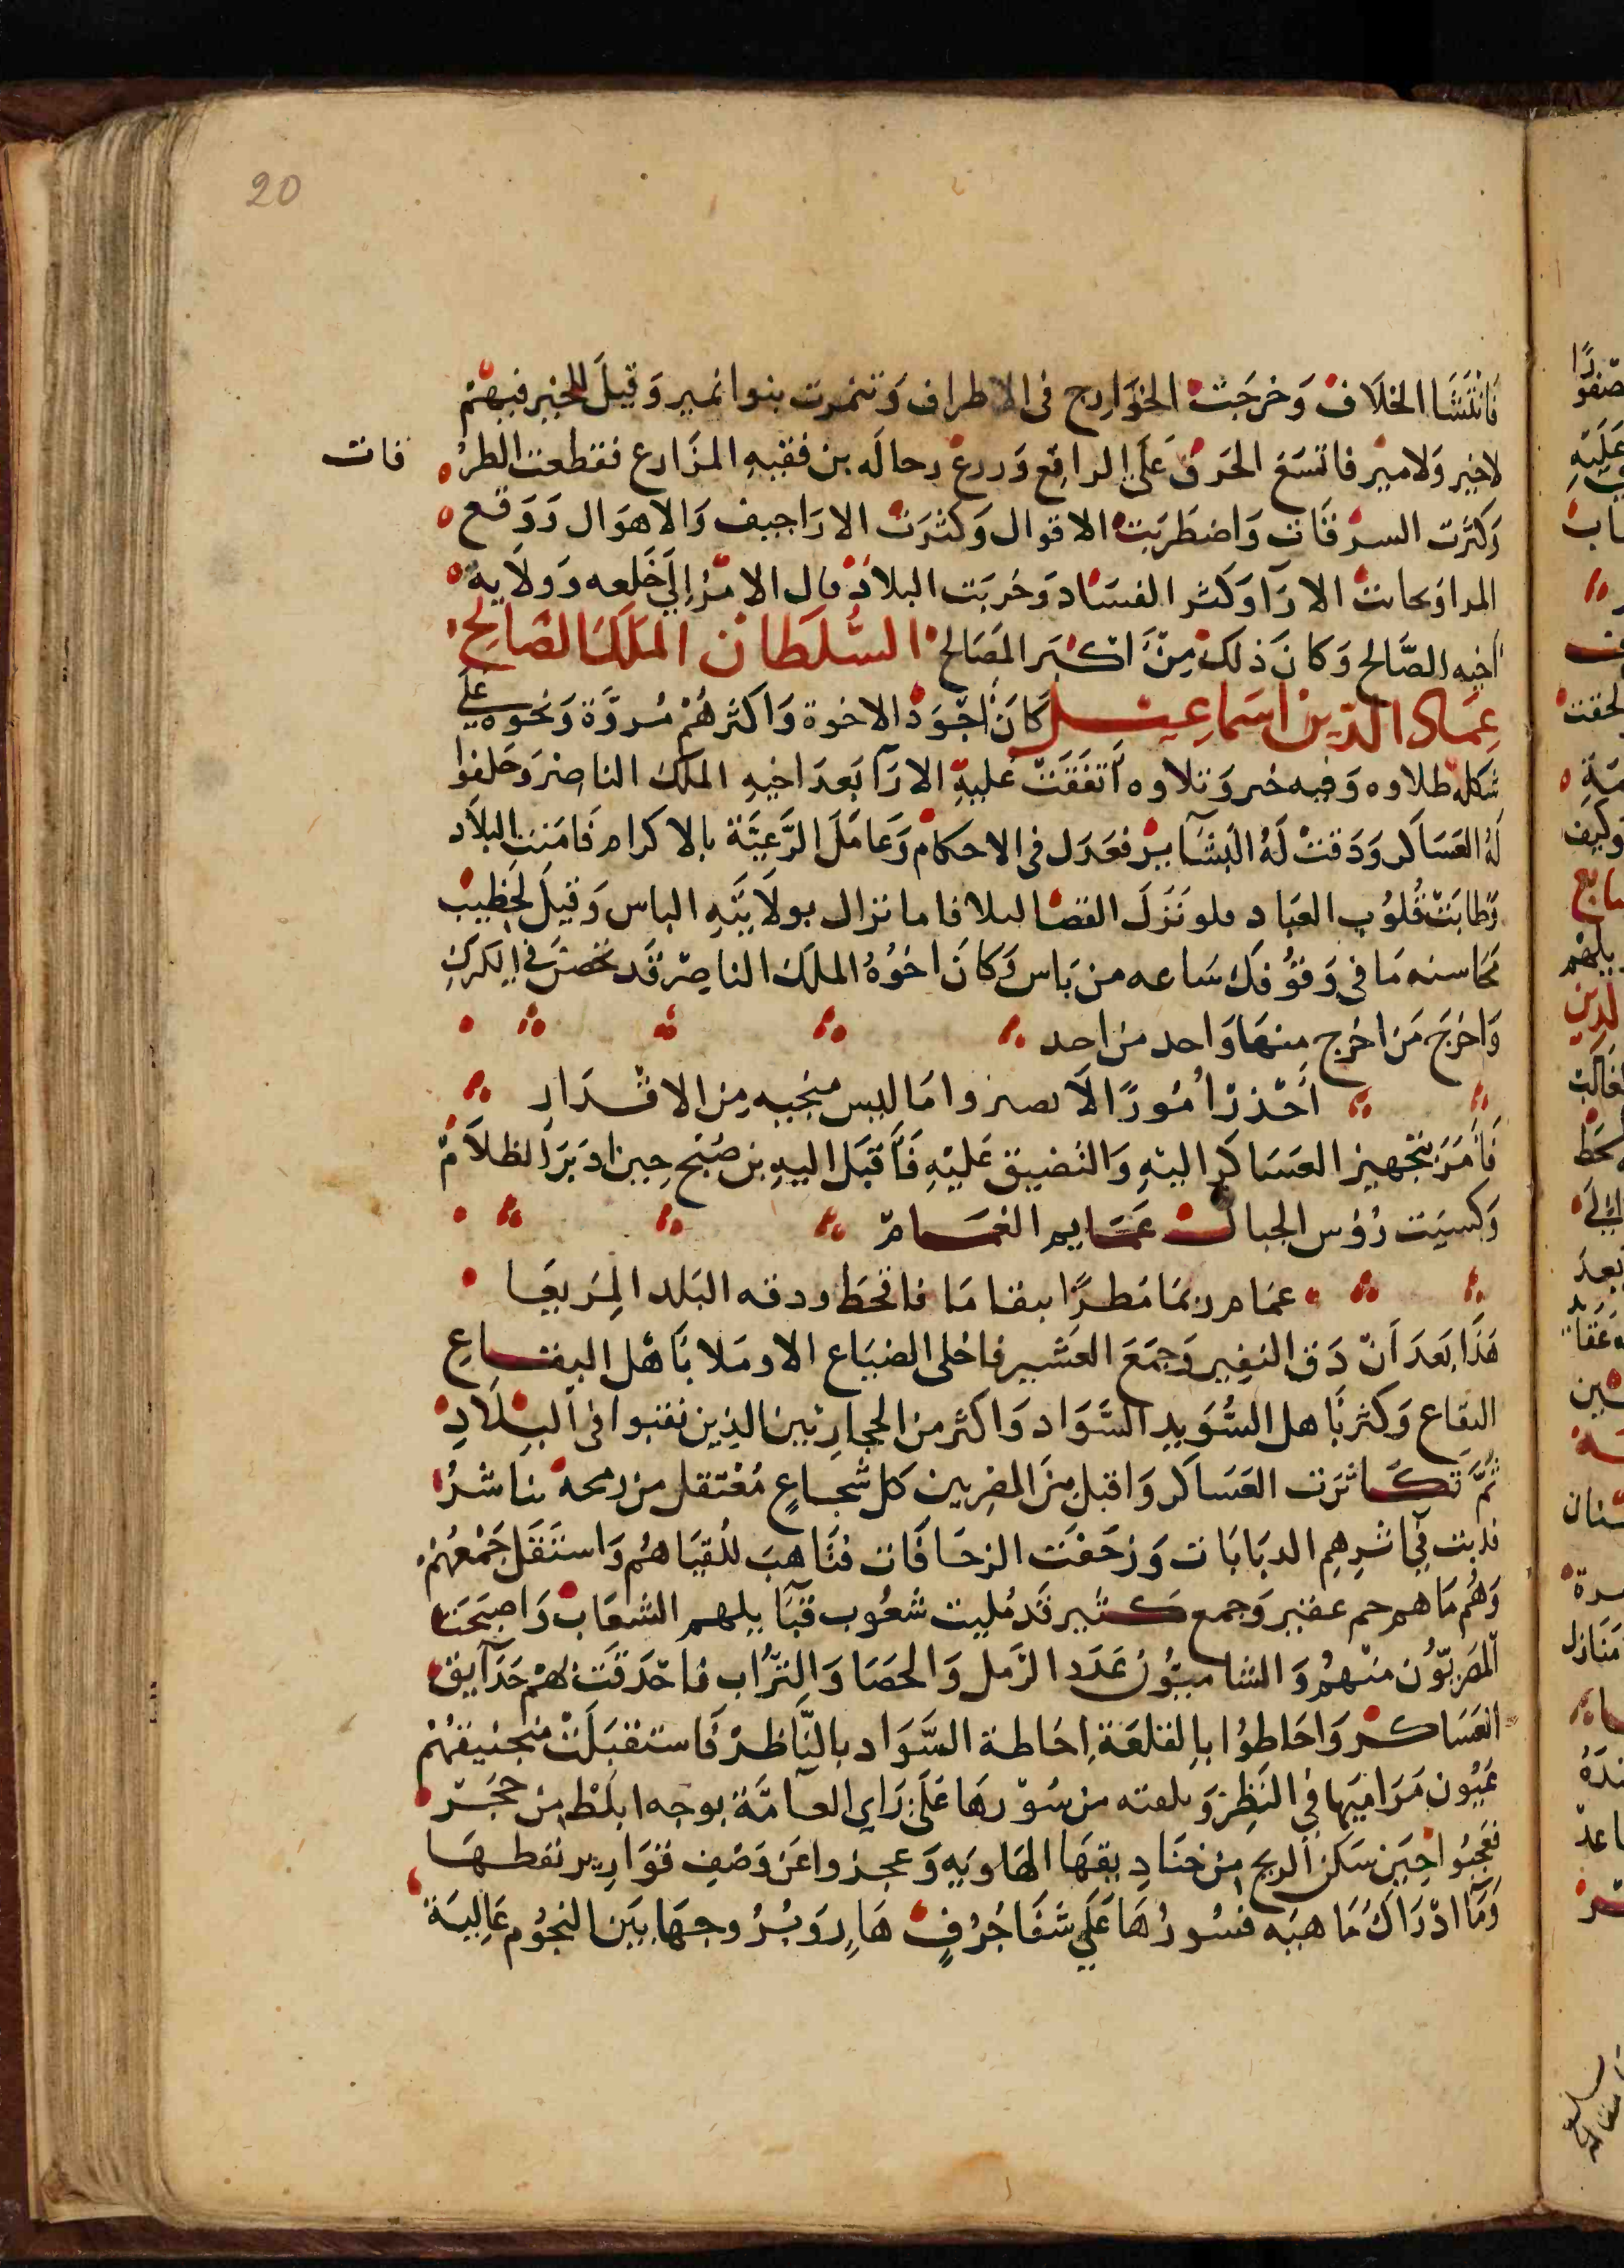 20
فَانْتَشَا الخلَاف وَخرجَتْ الخوَارِج فى الاطراف وَتنمرت بنوا نمير وَقيلَ للخير فيهمْ
لاخير وَلامير فاتسَع الخرق عَلَى الراقِع وَدرع رحاله بن فقيهِ المزَارع فقطعت الطرُ
قات
وَكثرت السرقَات وَاضطرَبَت الاقوال وَكثرَت الارَاجيف وَالاهوَال وَوَقع
الاراوَكثر الفسَاد وَخُربَت البلادْ مال الامرُ إلى خَلعه وَولَايةْ
اخيه الصَّالح وَكانَ ذلكَ مِنْ اكبَر المصَالح السُّلطَان المَلكَ الصَّالح
عِمَادُ الدّين اسمَاعِيل كَانَ اجْوَدْ الاخوة وَاكثرهُمْ مُروَّة وَنخوَة عَلى
شكله طلاوه وَفيه خير وَتلاوه اتفقَتْ عليْهِ الارآ بَعدَ اخيهِ الملك الناصرْ وَحلفوا
لهُ العَسَاكر وَدَقتْ لَهُ البشَآير فعَدَل فى الاحكام وَعَامَلَ الرَّعيَّة بالاكرام فَامَنت البلَاد
وَطابَتْ قُلوُب العبَاد ملو نَزَلَ القضا لىلا فاما نزال بولَايَتهِ الباس وَقيلَ لخطِيب
محَاسنه مَا فى وَقوُفكَ سَاعه من بَاس وَكانَ اخوُهُ الملك الناصرْ قَد تحَصَّن فى الكرَكِ
وَاخرَجَ مَن اخرج منهَا وَاحد من احد
أحْذر أمُورًا لَا تصر وامَا ليس منجيه من الاقْدَار
فَأمَرَ بتجهيز العسَاكر اليْهِ وَالتضييق عليْهِ فَأقبَل اليهِ بن صُبْح حِين ادبَرَ الظلَامْ
وَكسيَت رُؤس الجبال عَمَايم الغمَامْ
غمَام رىمَا مَطرًا سقامَا فاقحَط ودقه البَلد المرَيعَا
هَذَا بَعدَ أنْ دَق النفِير وَجمَعَ العَشير فاخلى الضيَاع الاوَملا بَأهْل البقَاعِ
البقاع وَكثر بَاهل السُّوَيدِ السَّوَاد وَاكثر من الجبارين الذين نقبوا فى البِلَادِ
ثُمَّ تَكَاثرَت العَسَاكر وَاقبل مِنَ المصريين كل شجاعٍ مُعْتقل من رمحه بناشرُ
فدبت فى اثرِهِم الدبَابَات وَزحَفت الزحَافَات فتَاهبَ للُقيَاهُم وَاسْتَقل جَمْعهُمْ
وَهُم مَاهم جم غفير وَجمع كثير قَد مُليت شعُوب قبَآيلهم الشعَابْ وَاصبَحَت
المصْريّوُن منهُمْ وَالشاميُّون عَدَد الرَّمل وَالحصَا وَالترَّاب فاحْدقت لهمْ حَدَآيق
العَسَاكر وَاحَاطوُا بالقلعَة إحَاطة السَّوَاد بالنَّاظرْ فَاستقبَلَتْ منجَنيقهُمْ
عَيُون مَرَاميَها فى النَظر وَ من سُوْرهَا عَلَى رَاي العآمَّة بوجه ابلَطْ من حجَرْ
فعَجبُوا حِين سَكن الريح من خنَادِيقهَا الهَاويَه وَعجزوا عَن وَصف قوَارير نفطهَا
وَمَا ادْرَاك مَا هيَه فسُورُهَا عَلى شَفَا جُرُفٍ هَارٍ وَبُرُوجهَا بيَن النجُوم عَاليَة